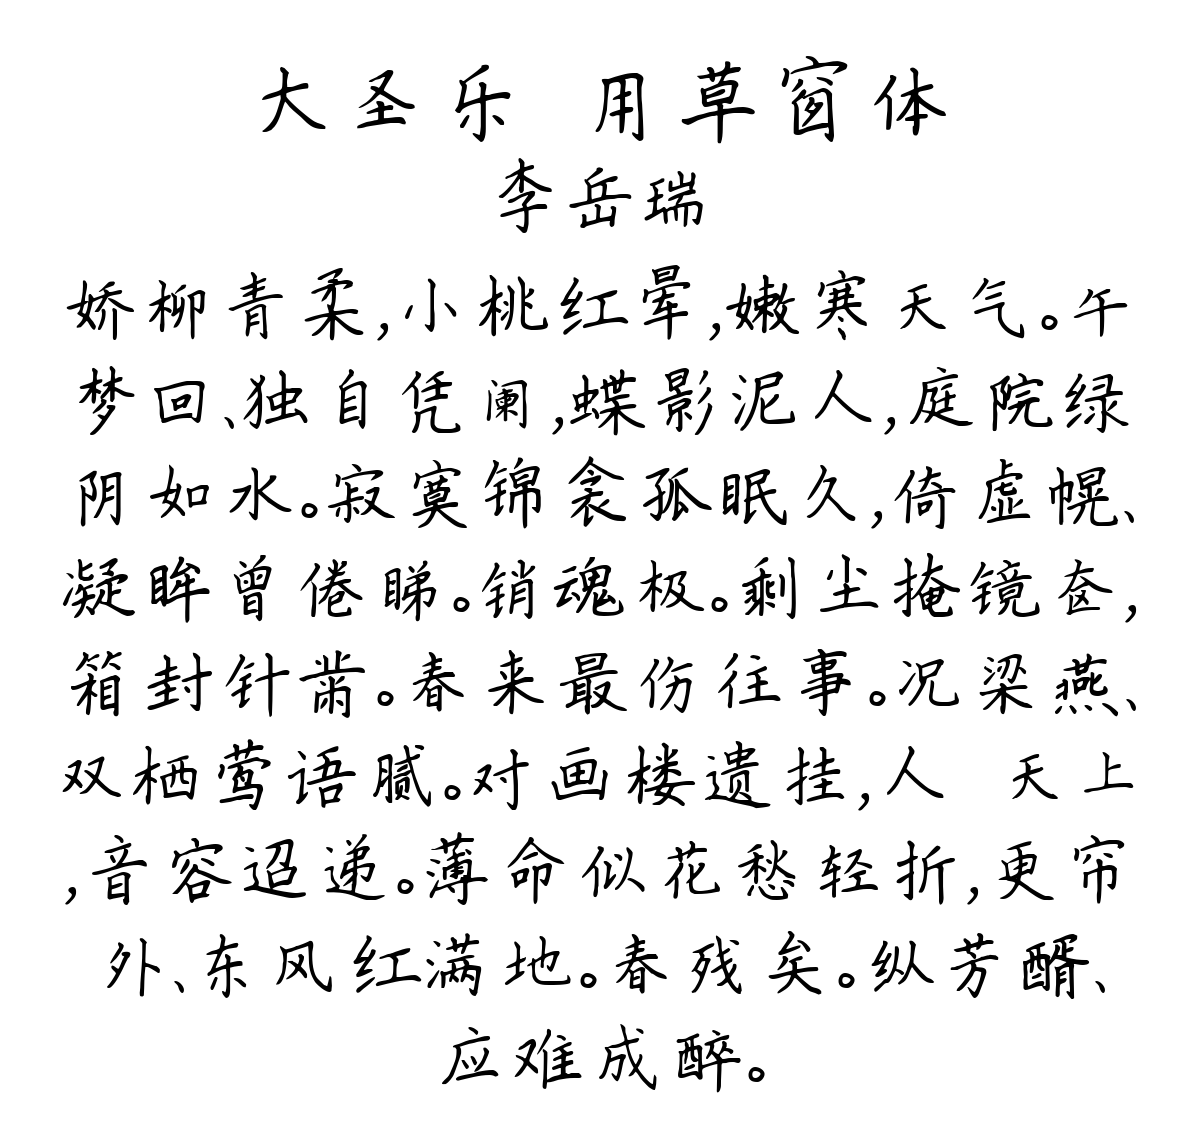 大圣乐 用草窗体
李岳瑞
娇柳青柔,小桃红晕,嫩寒天气。午
梦回、独自凭阑,蝶影泥人,庭院绿
阴如水。寂寞锦衾孤眠久,倚虚幌、
凝眸曾倦睇。销魂极。剩尘掩镜奁,
箱封针黹。春来最伤往事。况梁燕、
双栖莺语腻。对画楼遗挂,人 天上
,音容迢递。薄命似花愁轻折,更帘
外、东风红满地。春残矣。纵芳醑、
应难成醉。